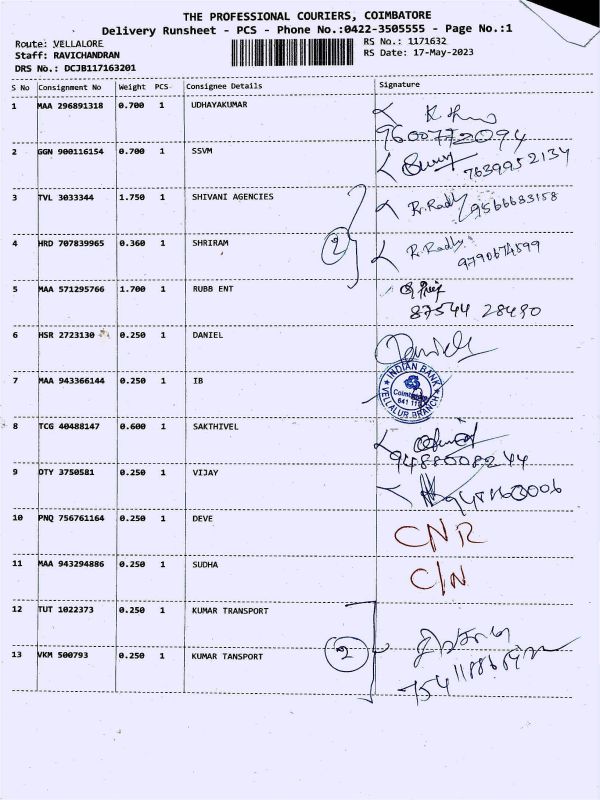 THE PROFESSIONAL COURIERS, COIMBATORE
Delivery Runsheet - PCS - Phone No.:0422-3505555 - Page No.:1
Route: VELLALORE
RS No.: 1171632
Staff: RAVICHANDRAN
RS Date: 17-May-2023
DRS No.: DCJB117163201
S No Consignment No Weight PCS Consignee Details Signature
1 MAA 296891318 0.700 1 UDHAYAKUMAR
9600772094
2 GGN 900116154 0.700 1 SSVM 7639952134
3 TVL 3033344 1.750 1 SHIVANI AGENCIES R.Radly 9566683158
2
4 HRD 707839965 0.360 1 SHRIRAM R.Radly 9790674599
5 MAA 571295766 1.700 1 RUBB ENT
87544 28490
6 HSR 2723130 0.250 1 DANIEL Daniel
7 MAA 943366144 0.250 1 IB
INDIAN BANK
Coimbatore
641 111
VELLALUR BRANCH
8 TCG 40488147 0.600 1 SAKTHIVEL
9488008244
9 DTY 3750581 0.250 1 VIJAY
10 PNQ 756761164 0.250 1 DEVE CNR
11 MAA 943294886 0.250 1 SUDHA C/N
12 TUT 1022373 0.250 1 KUMAR TRANSPORT
2
13 VKM 500793 0.250 1 KUMAR TANSPORT